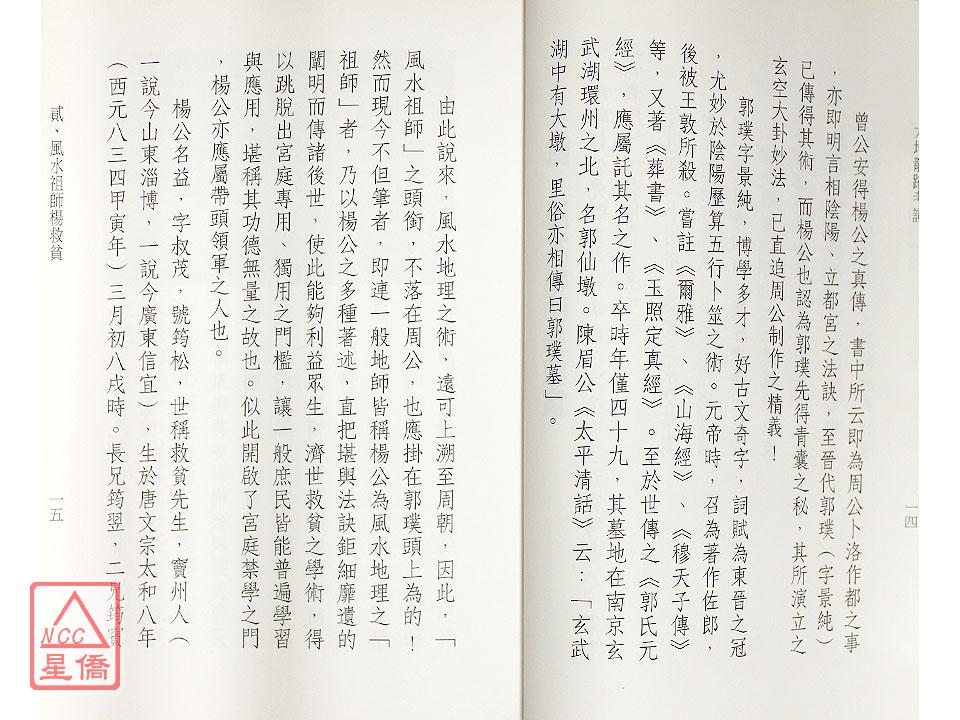 曾公安得楊公之真傳，書中所云即為周公卜洛作都之事
，亦即明言相陰陽、立都宮之法訣，至晉代郭璞（字景純）
已傳得其術，而楊公也認為郭璞先得青囊之秘，其所演立之
玄空大卦妙法，已直追周公制作之精義！
郭璞字景純，博學多才，好古文奇字，詞賦為東晉之冠
，尤妙於陰陽歷算五行卜筮之術。元帝時，召為著作佐郎，
後被王敦所殺。嘗註《爾雅》、《山海經》、《穆天子傳》
等，又著《葬書》、《玉照定真經》。至於世傳之《郭氏元
經》，應屬託其名之作。卒時年僅四十九，其墓地在南京玄
武湖環州之北，名郭仙墩。陳眉公《太平清話》云：「玄武
湖中有大墩，里俗亦相傳曰郭璞墓」。
一四
由此說來，風水地理之術，遠可上溯至周朝，因此，「
風水祖師」之頭銜，不落在周公，也應掛在郭璞頭上為的！
然而現今不但筆者，即連一般地師皆稱楊公為風水地理之「
祖師」者，乃以楊公之多種著述，直把堪輿法訣鉅細靡遺的
闡明而傳諸後世，使此能夠利益眾生，濟世救貧之學術，得
以跳脫出宮庭專用、獨用之門檻，讓一般庶民皆能普遍學習
與應用，堪稱其功德無量之故也。似此開啟了宮庭禁學之門
，楊公亦應屬帶頭領軍之人也。
楊公名益，字叔茂，號筠松，世稱救貧先生，竇州人（
一說今山東淄博，一說今廣東信宜），生於唐文宗太和八年
（西元八三四甲寅年）三月初八戌時。長兄筠翌，二兄筠賓
貳、風水祖師楊救貧
一五
NCC
星僑